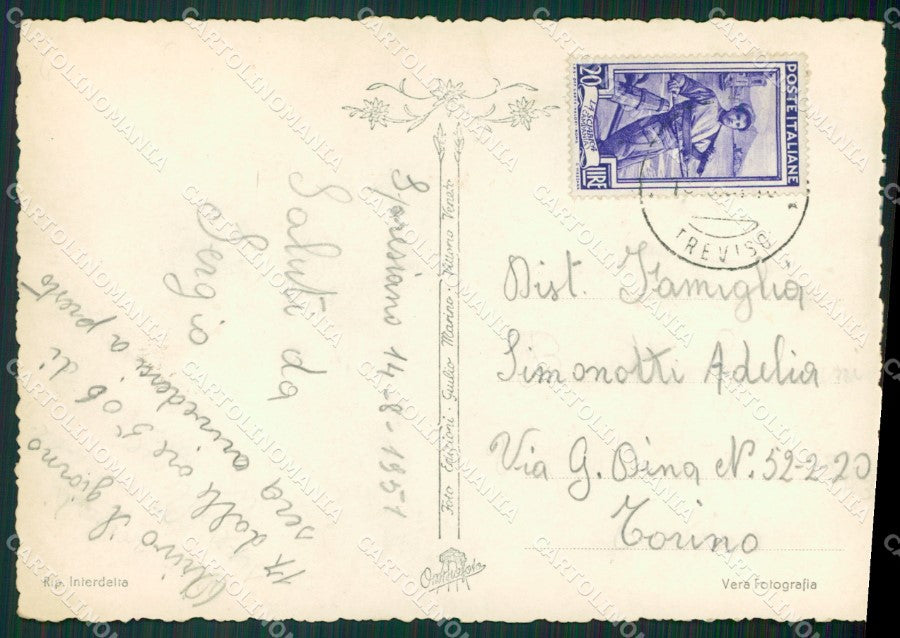 Spresiano 14-8-1951
Saluti da
Sergio
Arrivo il giorno
17 dalle ore 5 o 6 di
sera
arrivederci a presto
Rip. Interdetta
Foto Edizioni - Giulio Marino - Vittorio Veneto
20
LIRE
POSTE ITALIANE
TREVISO
Dist. Famiglia
Simonotti Adelia
Via G. Dina N. 52-2-20
Torino
Vera Fotografia
CARTOLINOMANIA